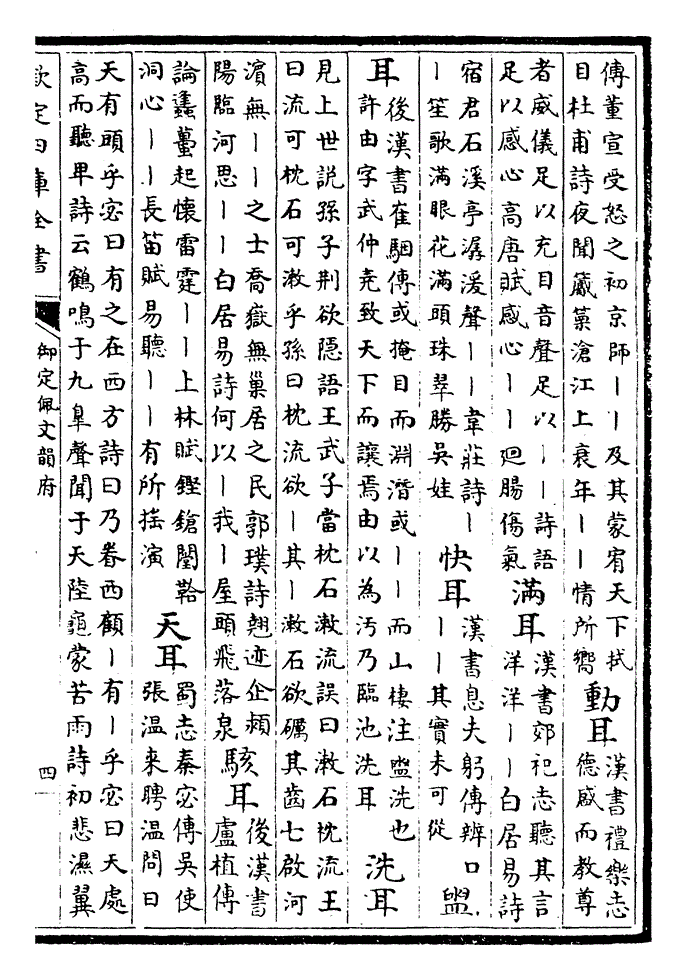 傳董宣受怒之初京師丨丨及其蒙宥天下拭
目杜甫詩夜聞觱篥滄江上衰年丨丨情所嚮
動耳
漢書禮樂志
德感而教尊
者威儀足以充目音聲足以丨丨詩語
足以感心高唐賦感心丨丨廻腸傷氣
滿耳
漢書郊祀志聽其言
洋洋丨丨白居易詩
宿君石溪亭潺湲聲丨丨韋莊詩丨
丨笙歌滿眼花滿頭珠翠勝吳娃
快耳
漢書息夫躬傳辨口
丨丨其實未可從
盥
耳
後漢書崔駰傳或掩目而淵潛或丨丨而山棲注盥洗也
許由字武仲堯致天下而讓焉由以為汚乃臨池洗耳
洗耳
見上世說孫子荆欲隱語王武子當枕石漱流誤曰漱石枕流王
曰流可枕石可漱乎孫曰枕流欲丨其丨漱石欲礪其齒七啟河
濵無丨丨之士喬嶽無巢居之民郭璞詩翹迹企頴
陽臨河思丨丨白居易詩何以丨我丨屋頭飛落泉
駭耳
後漢書
盧植傳
論蠭蠆起懷雷霆丨丨上林賦鏗鎗闛鞈
洞心丨丨長笛賦易聽丨丨有所摇演
天耳
蜀志秦宓傳吳使
張温來聘温問曰
天有頭乎宓曰有之在西方詩曰乃眷西顧丨有丨乎宓曰天處
高而聽卑詩云鶴鳴于九臯聲聞于天陸龜蒙苦雨詩初悲濕翼
欽定四庫全書
御定佩文韻府
四